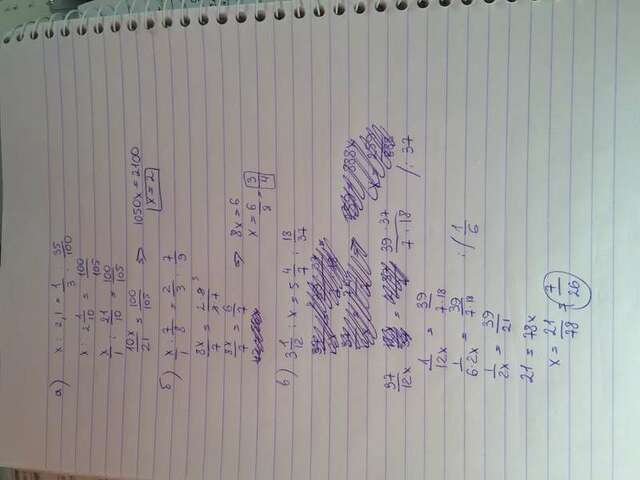 а) x : 2,1 = 1/3 : 35/100
x : 2 1/10 = 100/105
x/1 : 21/10 = 100/105
10x/21 = 100/105 => 1050x = 2100
x = 2
б) x/1 : 7/8 = 2/3 : 7/9
8x/7 = 2·9 3/3·7
8x/7 = 6/7 => 8x = 6
x = 6/8 = 3/4
в) 3 1/12 : x = 5 4/7 : 18/37
37/12x = 39·37/7·18 /: 37
1/12x = 39/7·18
1/6·2x = 39/7·18 : / 1/6
1/2x = 39/21
21 = 78x
x = 21/78 = 7/26